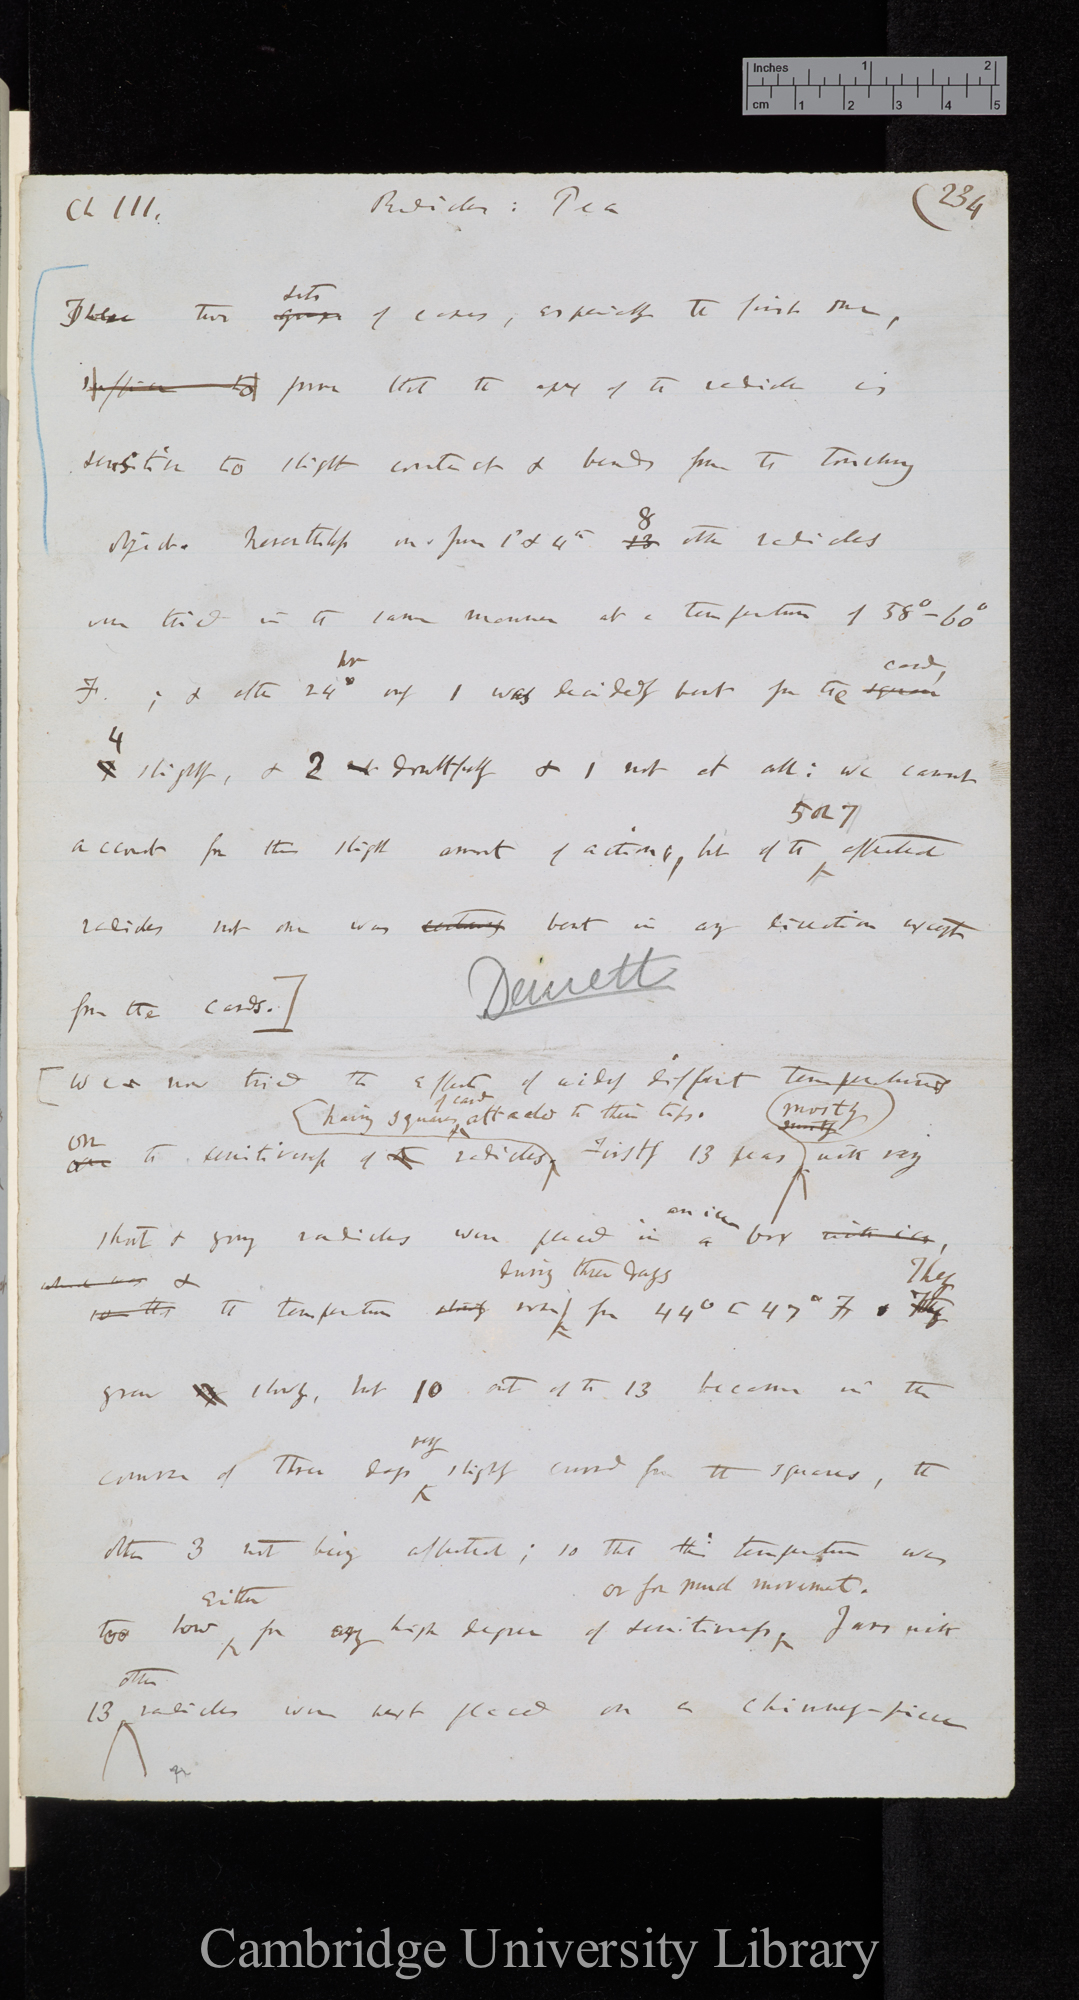 Inches 1 2
cm 1 2 3 4 5
Ch III. Radicles : Pea (234
sets
These two groups of cases, especially the first one,
suffice to prove that the apex of the radicle is
sensitive to slight contact & bends from the touching
object. Nevertheless 8
13 other radicles
were tried in the same manner at a temperature of 58°–60°
hr card,
F. ; & after 24° only 1 was decidedly bent from the square
4
slightly, & 2 doubtfully & 1 not at all: we cannot
5 or 7
account for this slight amount of action, but of the affected
radicles not one was certainly bent in any direction except
from the cards.]
[We now tried the effects of widely different temperatures
having squares of card attached to their tips. mostly
mostly
on
one the sensitiveness of the radicles. Firstly 13 peas with very
an ice
short & young radicles were placed in a box with ice,
which was & during three days They
so the the temperature slowly rising from 44° to 47° F. They
grew slowly, but 10 out of the 13 became in the
very
course of three days slightly curved from the squares, the
other 3 not being affected; so that this temperature was
either or for much movement.
too low for any high degree of sensitiveness. Jars with
other
13 radicles were next placed on a chimney-piece
Cambridge University Library